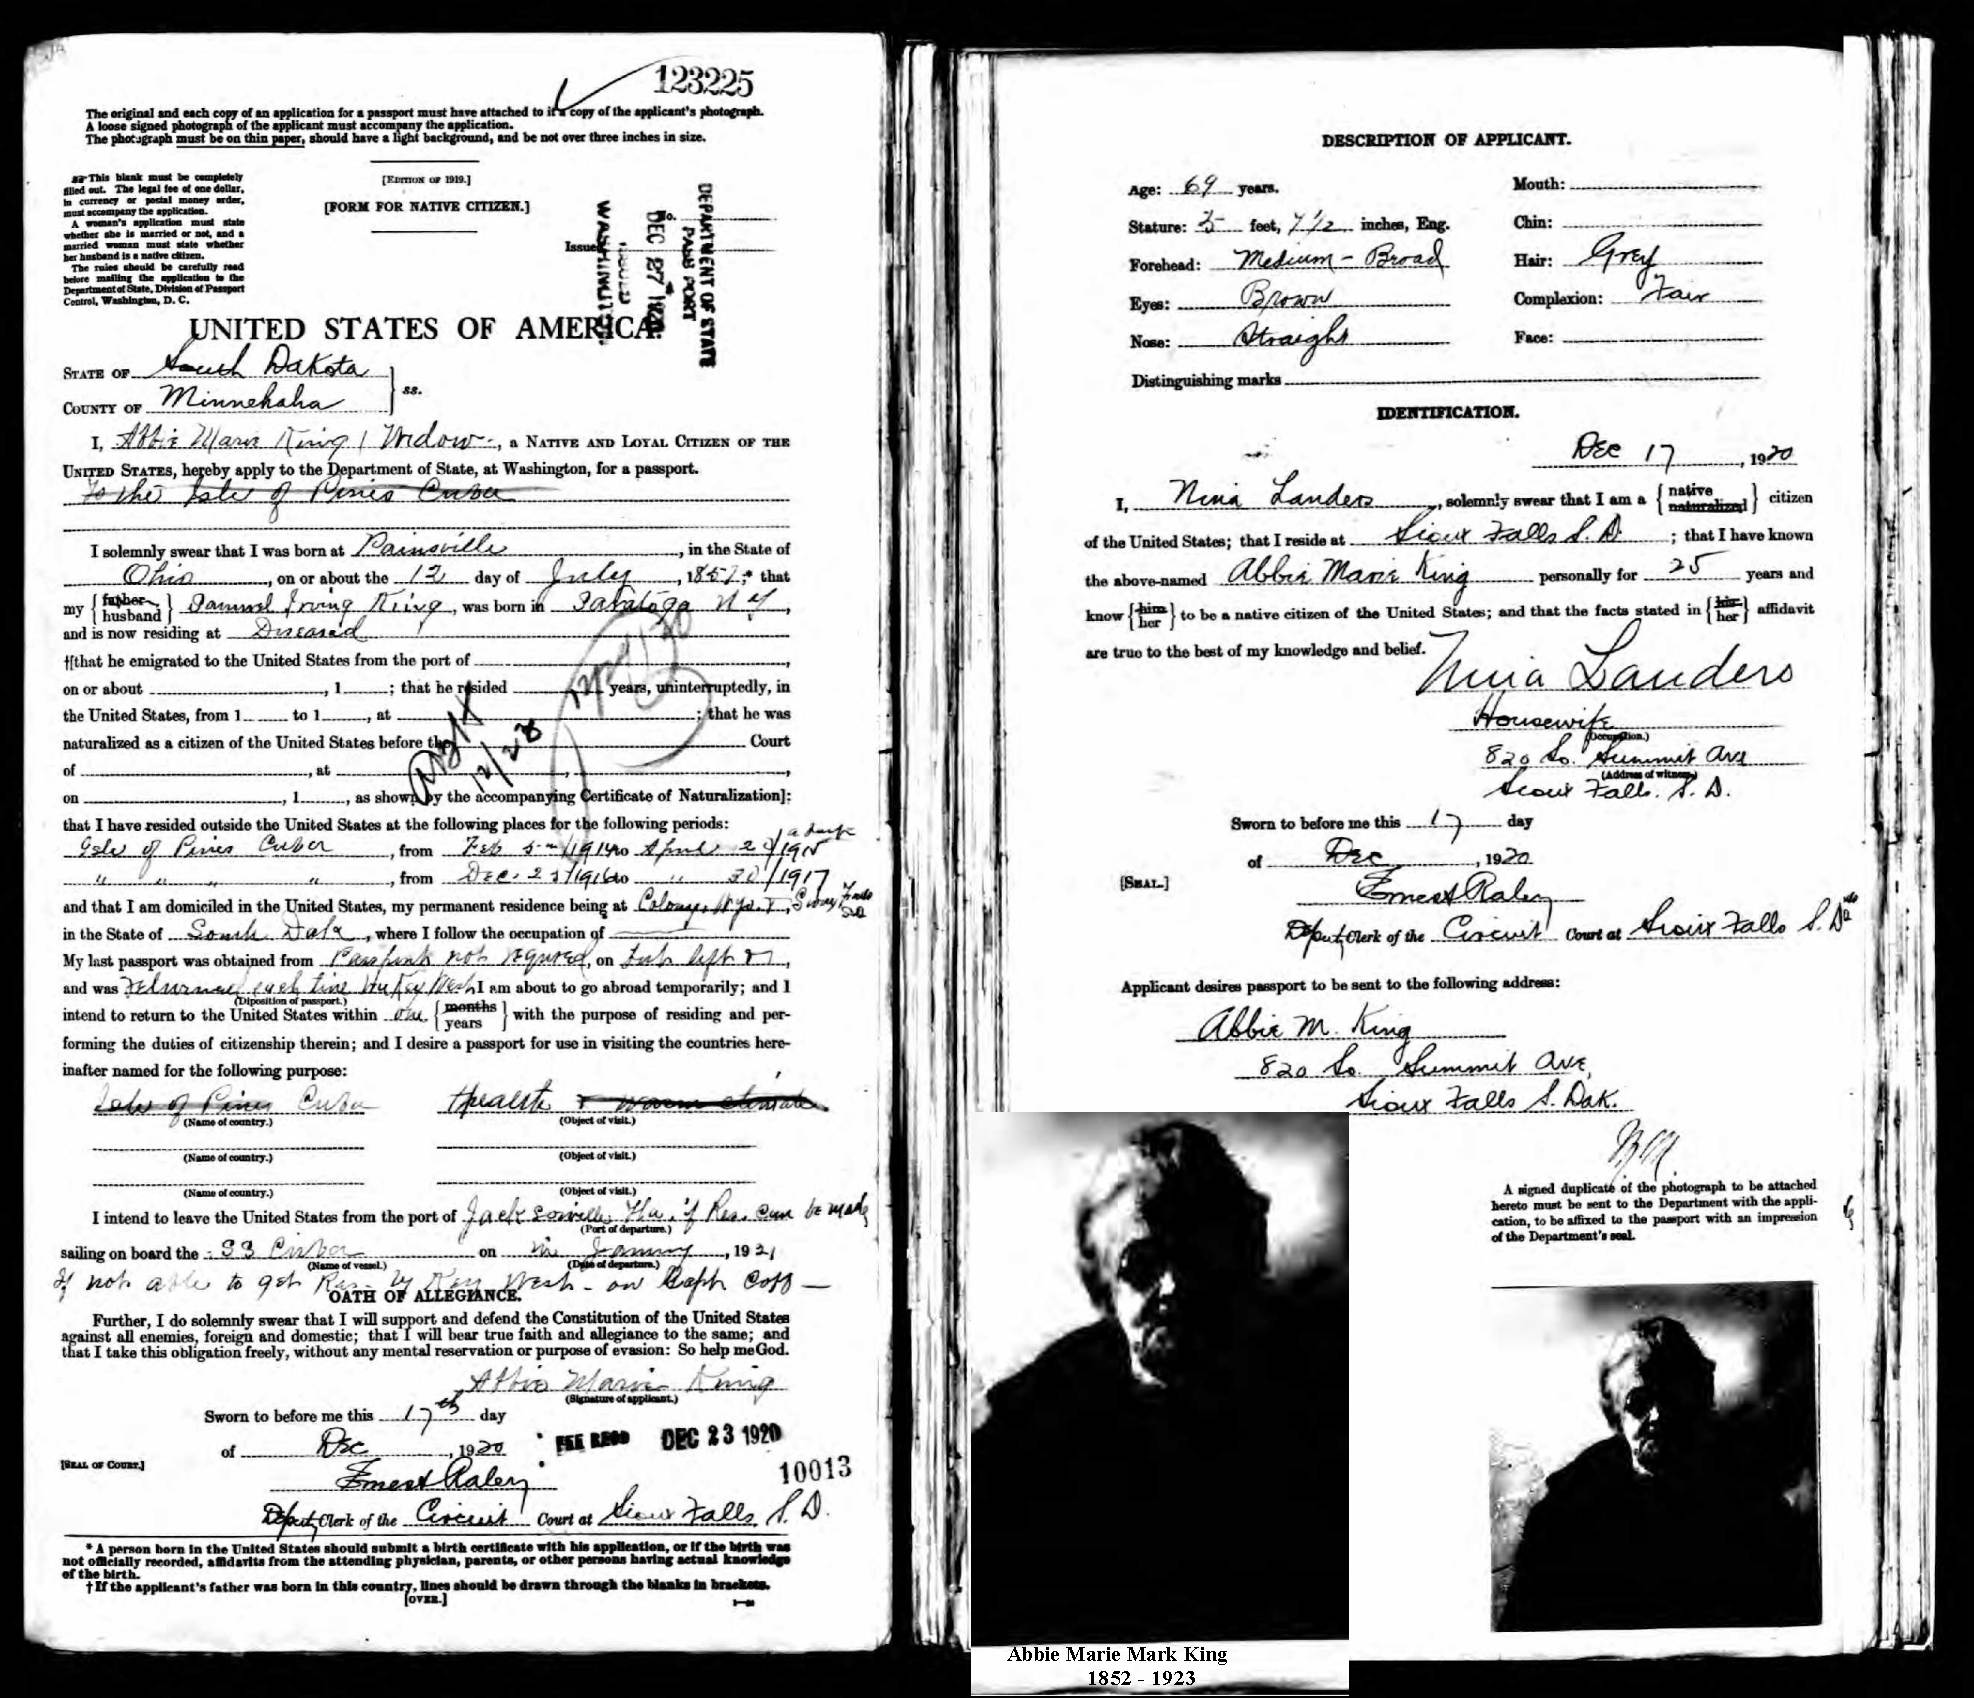 123225
The original and each copy of an application for a passport must have attached to it a copy of the applicant's photograph.
A loose signed photograph of the applicant must accompany the application.
The photograph must be on thin paper, should have a light background, and be not over three inches in size.
This blank must be completely
filled out. The legal fee of one dollar,
in currency or postal money order,
must accompany the application.
A woman's application must state
whether she is married or not, and a
married woman must state whether
her husband is a native citizen.
The rules should be carefully read
before mailing the application to the
Department of State, Division of Passport
Control, Washington, D. C.
[EDITION OF 1919.]
[FORM FOR NATIVE CITIZEN.]
No.
Issued
DEPARTMENT OF STATE
PASSPORT
DEC 27 1920
ISSUED
WASHINGTON
UNITED STATES OF AMERICA.
STATE OF South Dakota
COUNTY OF Minnehaha
ss.
I, Abbie Marie King, Widow, a NATIVE AND LOYAL CITIZEN OF THE
UNITED STATES, hereby apply to the Department of State, at Washington, for a passport.
To the Isle of Pines Cuba
I solemnly swear that I was born at Painsville, in the State of
Ohio, on or about the 12 day of July, 1852;* that
my {father husband} Samuel Irving King, was born in Saratoga N Y,
and is now residing at Diseased
†[that he emigrated to the United States from the port of
on or about , 1 ; that he resided years, uninterruptedly, in
the United States, from 1 to 1 , at ; that he was
naturalized as a citizen of the United States before the Court
of , at ,
on , 1 , as shown by the accompanying Certificate of Naturalization];
12/28
that I have resided outside the United States at the following places for the following periods:
Isle of Pines Cuba, from Feb 5 /1914 to April 20/1915
" " " " , from Dec. 23/1916 to " 20/1917
and that I am domiciled in the United States, my permanent residence being at Sioux Falls
in the State of South Dak, where I follow the occupation of
My last passport was obtained from Passport not required, on
and was Returned each time Key West I am about to go abroad temporarily; and I
(Disposition of passport.)
intend to return to the United States within one {months years} with the purpose of residing and per-
forming the duties of citizenship therein; and I desire a passport for use in visiting the countries here-
inafter named for the following purpose:
Isle of Pines Cuba Health & warm climate
(Name of country.) (Object of visit.)
(Name of country.) (Object of visit.)
(Name of country.) (Object of visit.)
I intend to leave the United States from the port of Jacksonville Fla. if Res. can be made
(Port of departure.)
sailing on board the SS Cuba on in January, 1921
(Name of vessel.) (Date of departure.)
If not able to get Res. by Key West - on
OATH OF ALLEGIANCE.
Further, I do solemnly swear that I will support and defend the Constitution of the United States
against all enemies, foreign and domestic; that I will bear true faith and allegiance to the same; and
that I take this obligation freely, without any mental reservation or purpose of evasion: So help me God.
Abbie Marie King
(Signature of applicant.)
Sworn to before me this 17th day
of Dec, 1920
FEE RECD DEC 23 1920
[SEAL OF COURT.]
10013
Ernest Raley
Deputy Clerk of the Circuit Court at Sioux Falls, S. D.
* A person born in the United States should submit a birth certificate with his application, or if the birth was
not officially recorded, affidavits from the attending physician, parents, or other persons having actual knowledge
of the birth.
† If the applicant's father was born in this country, lines should be drawn through the blanks in brackets.
[OVER.]
DESCRIPTION OF APPLICANT.
Age: 69 years. Mouth:
Stature: 5 feet, 7 1/2 inches, Eng. Chin:
Forehead: Medium - Broad Hair: Grey
Eyes: Brown Complexion: Fair
Nose: Straight Face:
Distinguishing marks
IDENTIFICATION.
Dec 17, 1920
I, Nina Landers, solemnly swear that I am a {native naturalized} citizen
of the United States; that I reside at Sioux Falls S. D.; that I have known
the above-named Abbie Marie King personally for 25 years and
know {him her} to be a native citizen of the United States; and that the facts stated in {his her} affidavit
are true to the best of my knowledge and belief.
Nina Landers
Housewife
(Occupation.)
820 So. Summit Ave
(Address of witness)
Sioux Falls. S. D.
Sworn to before me this 17 day
of Dec, 1920
[SEAL.]
Ernest Raley
Deputy Clerk of the Circuit Court at Sioux Falls S. Da
Applicant desires passport to be sent to the following address:
Abbie M. King
820 So. Summit Ave,
Sioux Falls S. Dak.
A signed duplicate of the photograph to be attached
hereto must be sent to the Department with the appli-
cation, to be affixed to the passport with an impression
of the Department's seal.
Abbie Marie Mark King
1852 - 1923